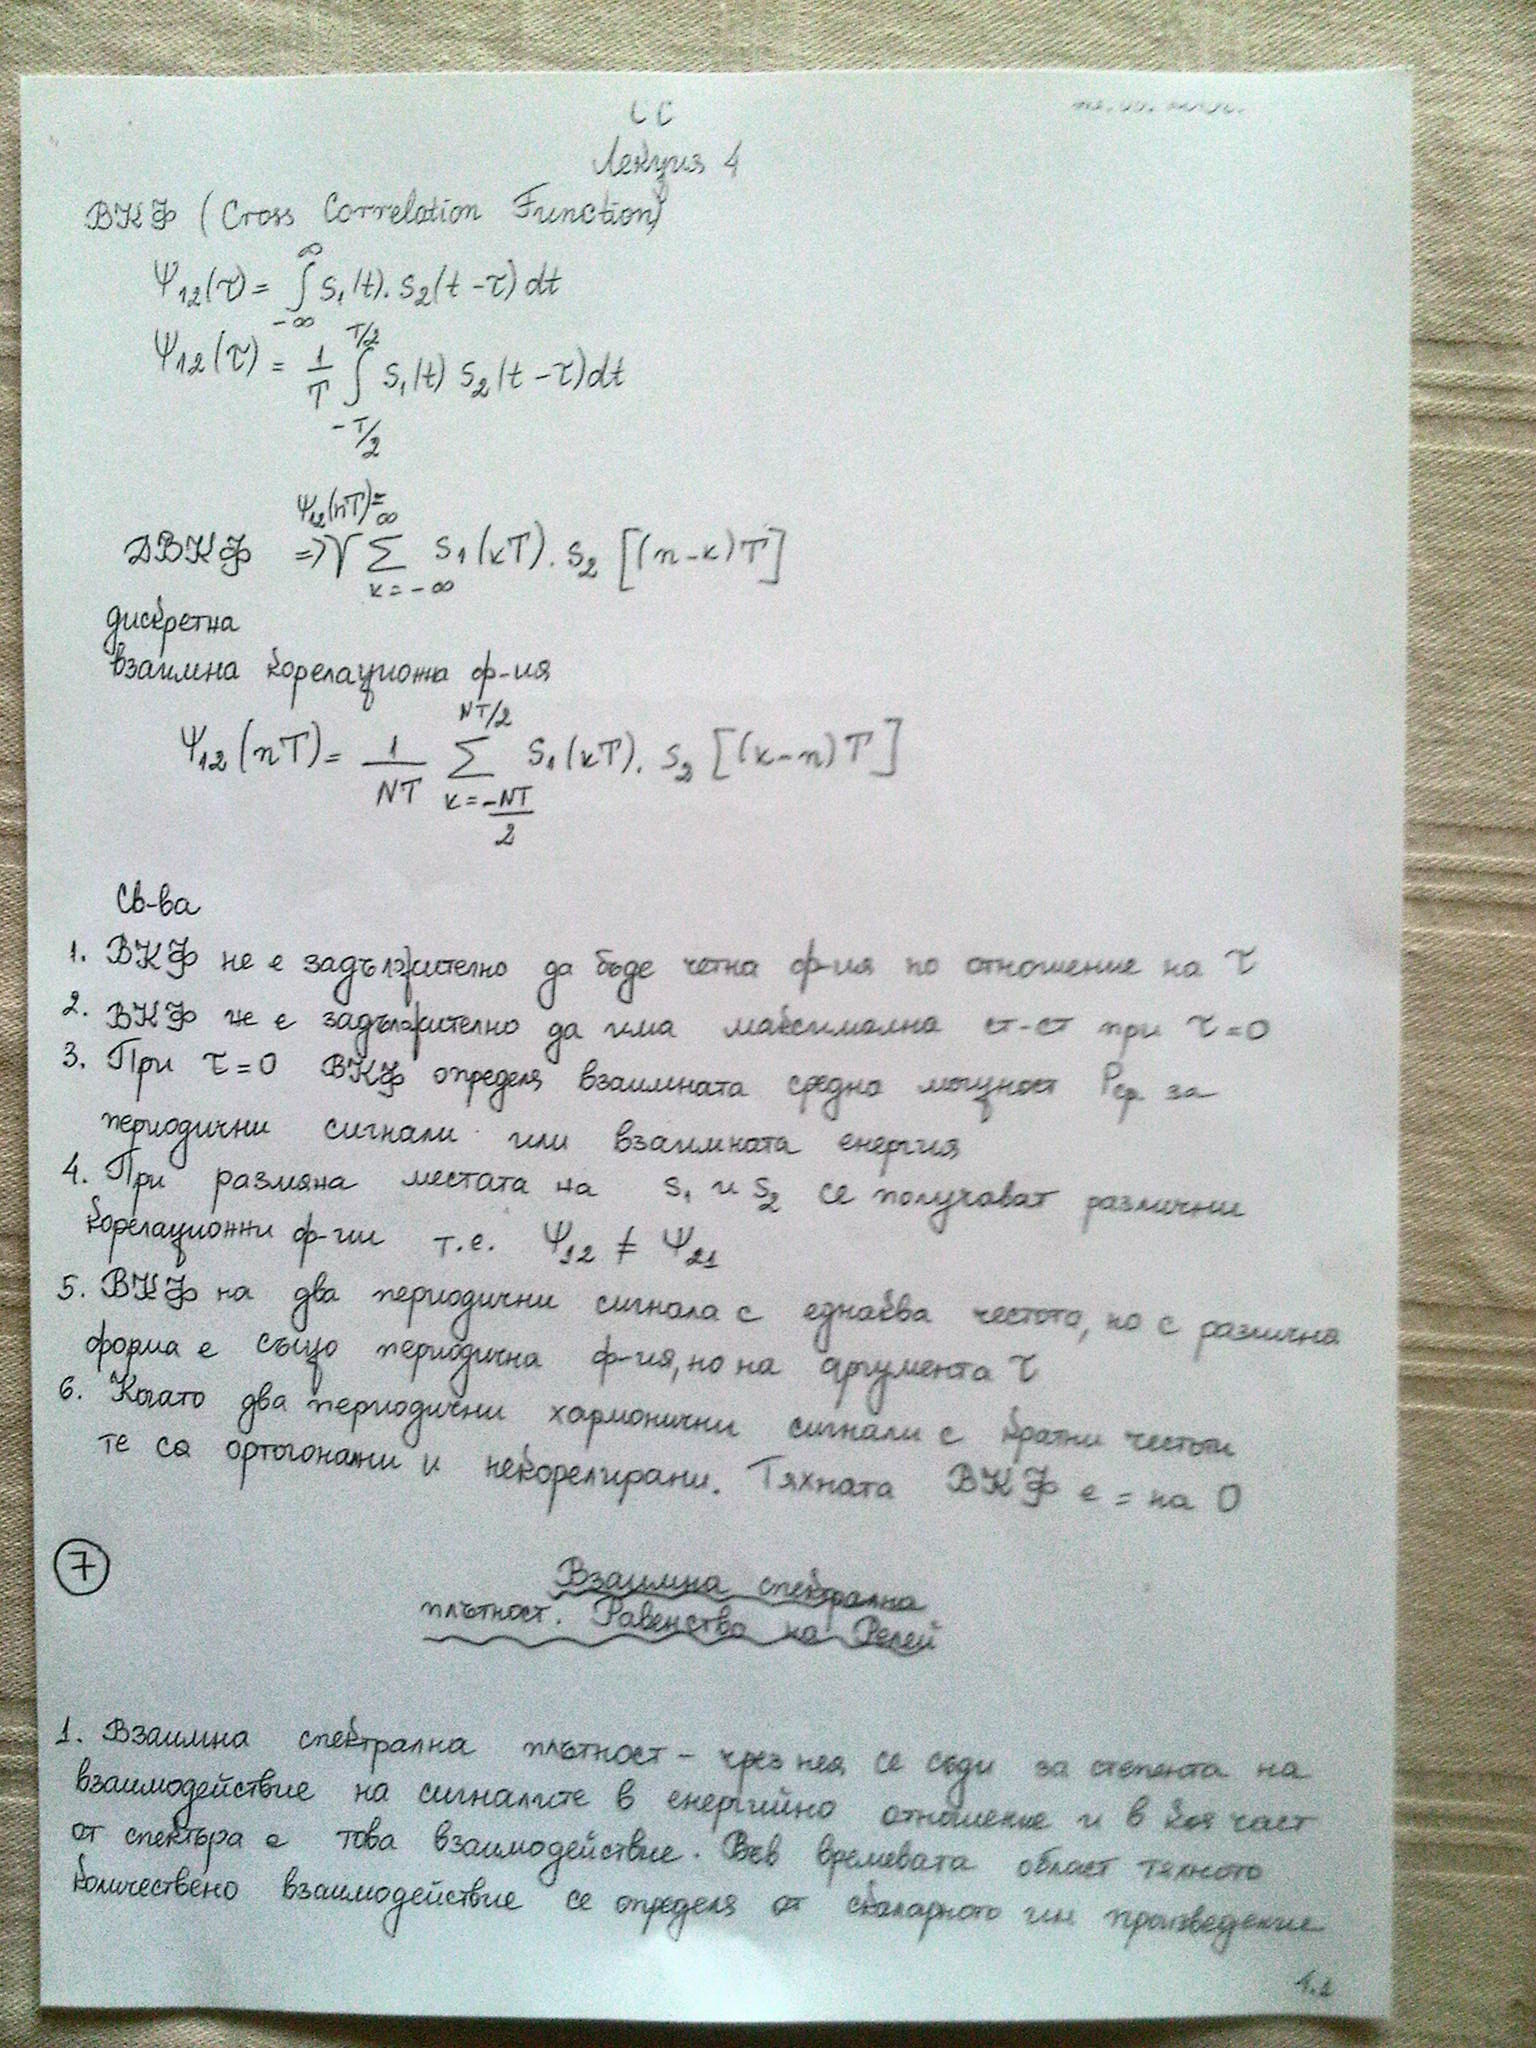 СС
Лекция 4
ВКФ (Cross Correlation Function)
Ψ₁₂(τ) = ∫_{-∞}^{∞} s₁(t). s₂(t-τ) dt
Ψ₁₂(τ) = 1/T ∫_{-T/2}^{T/2} s₁(t) s₂(t-τ) dt
Ψ₁₂(nT)=
ДВКФ => ∑_{k=-∞}^{∞} s₁(kT). s₂ [(n-k)T]
дискретна
взаимна корелационна ф-ия
Ψ₁₂(nT) = 1/NT ∑_{k=-NT/2}^{NT/2} s₁(kT). s₂ [(k-n)T]
Св-ва
1. ВКФ не е задължително да бъде четна ф-ия по отношение на τ
2. ВКФ не е задължително да има максимална ст-ст при τ=0
3. При τ=0 ВКФ определя взаимната средна мощност Pср за
периодични сигнали или взаимната енергия
4. При размяна местата на s₁ и s₂ се получават различни
корелационни ф-ии т.е. Ψ₁₂ ≠ Ψ₂₁
5. ВКФ на два периодични сигнала с еднаква честота, но с различна
форма е също периодична ф-ия, но на аргумента τ
6. Когато два периодични хармонични сигнали с кратни честоти
те са ортогонални и некорелирани. Тяхната ВКФ е = на 0
7
Взаимна спектрална
плътност. Равенства на Релей
1. Взаимна спектрална плътност – чрез нея се съди за степента на
взаимодействие на сигналите в енергийно отношение и в коя част
от спектъра е това взаимодействие. Във времевата област тяхното
количествено взаимодействие се определя от скаларното им произведение
4.1